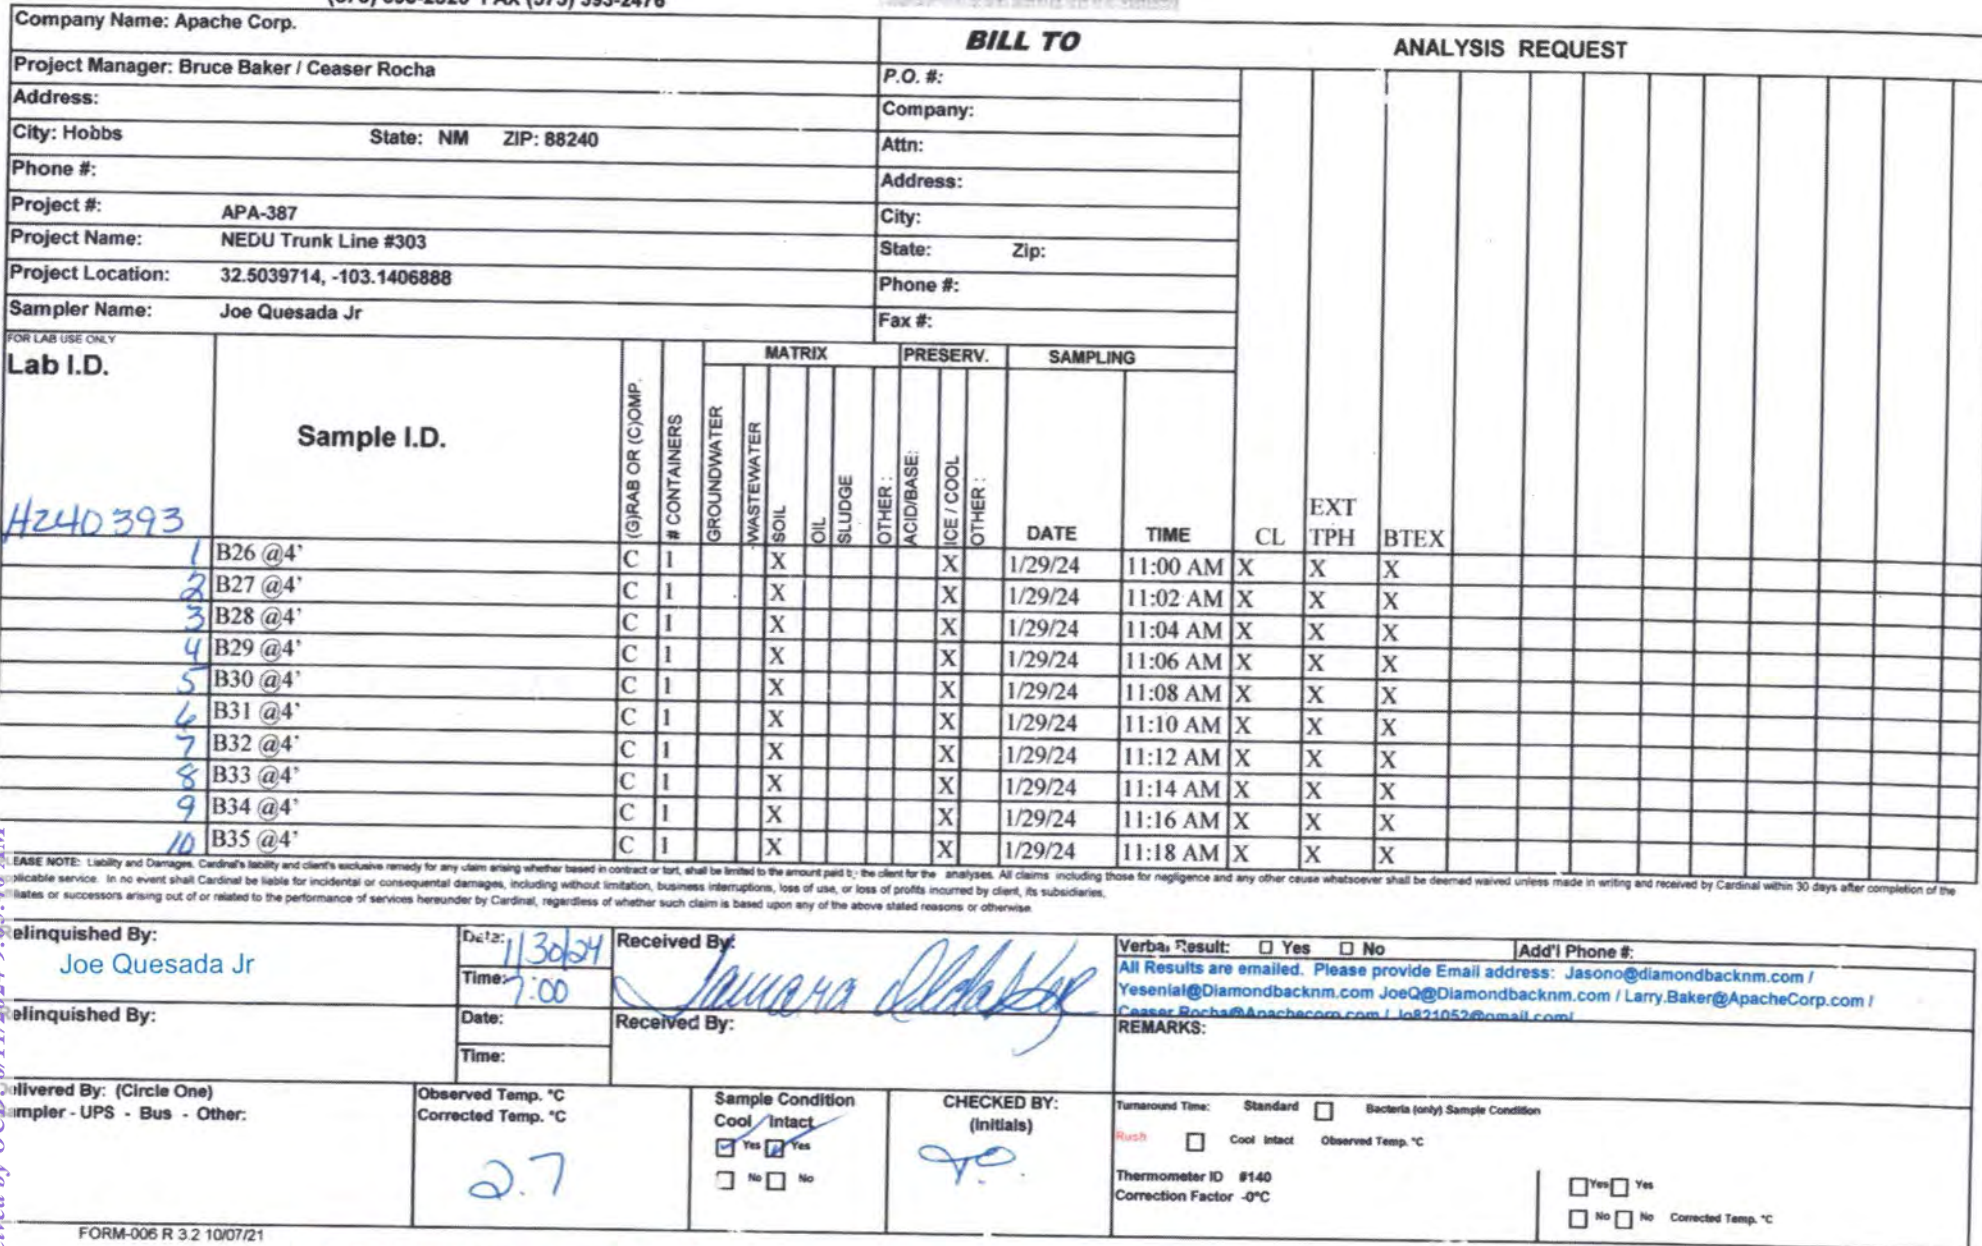 Company Name: Apache Corp.
BILL TO
ANALYSIS REQUEST
Project Manager: Bruce Baker / Ceaser Rocha
P.O. #:
Address:
Company:
City: Hobbs State: NM ZIP: 88240
Attn:
Phone #:
Address:
Project #: APA-387
City:
Project Name: NEDU Trunk Line #303
State: Zip:
Project Location: 32.5039714, -103.1406888
Phone #:
Sampler Name: Joe Quesada Jr
Fax #:
FOR LAB USE ONLY
Lab I.D.
Sample I.D.
(G)RAB OR (C)OMP.
# CONTAINERS
MATRIX
GROUNDWATER
WASTEWATER
SOIL
OIL
SLUDGE
OTHER :
PRESERV.
ACID/BASE:
ICE / COOL
OTHER :
SAMPLING
DATE
TIME
CL
EXT
TPH
BTEX
H240393
1 B26 @4' C 1 X X 1/29/24 11:00 AM X X X
2 B27 @4' C 1 X X 1/29/24 11:02 AM X X X
3 B28 @4' C 1 X X 1/29/24 11:04 AM X X X
4 B29 @4' C 1 X X 1/29/24 11:06 AM X X X
5 B30 @4' C 1 X X 1/29/24 11:08 AM X X X
6 B31 @4' C 1 X X 1/29/24 11:10 AM X X X
7 B32 @4' C 1 X X 1/29/24 11:12 AM X X X
8 B33 @4' C 1 X X 1/29/24 11:14 AM X X X
9 B34 @4' C 1 X X 1/29/24 11:16 AM X X X
10 B35 @4' C 1 X X 1/29/24 11:18 AM X X X
LEASE NOTE: Liability and Damages. Cardinal's liability and client's exclusive remedy for any claim arising whether based in contract or tort, shall be limited to the amount paid by the client for the analyses. All claims including those for negligence and any other cause whatsoever shall be deemed waived unless made in writing and received by Cardinal within 30 days after completion of the
plicable service. In no event shall Cardinal be liable for incidental or consequental damages, including without limitation, business interruptions, loss of use, or loss of profits incurred by client, its subsidiaries,
filiates or successors arising out of or related to the performance of services hereunder by Cardinal, regardless of whether such claim is based upon any of the above stated reasons or otherwise.
elinquished By:
Joe Quesada Jr
Date: 1/30/24
Time: 7:00
Received By:
Tamara
Verbal Result: Yes No Add'l Phone #:
All Results are emailed. Please provide Email address: Jasono@diamondbacknm.com /
Yesenial@Diamondbacknm.com JoeQ@Diamondbacknm.com / Larry.Baker@ApacheCorp.com /
Ceaser.Rocha@Apachecorp.com / Jq821052@gmail.com/
elinquished By:
Date:
Time:
Received By:
REMARKS:
elivered By: (Circle One)
ampler - UPS - Bus - Other:
Observed Temp. °C
Corrected Temp. °C
2.7
Sample Condition
Cool Intact
Yes Yes
No No
CHECKED BY:
(Initials)
Turnaround Time: Standard Bacteria (only) Sample Condition
Rush Cool Intact Observed Temp. °C
Thermometer ID #140
Correction Factor -0°C
Yes Yes
No No Corrected Temp. °C
FORM-006 R 3.2 10/07/21